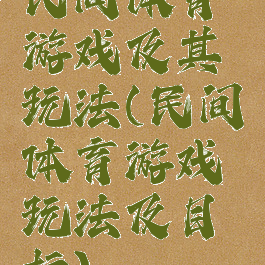 民间体育
游戏及其
玩法(民间
体育游戏
玩法及目
标)